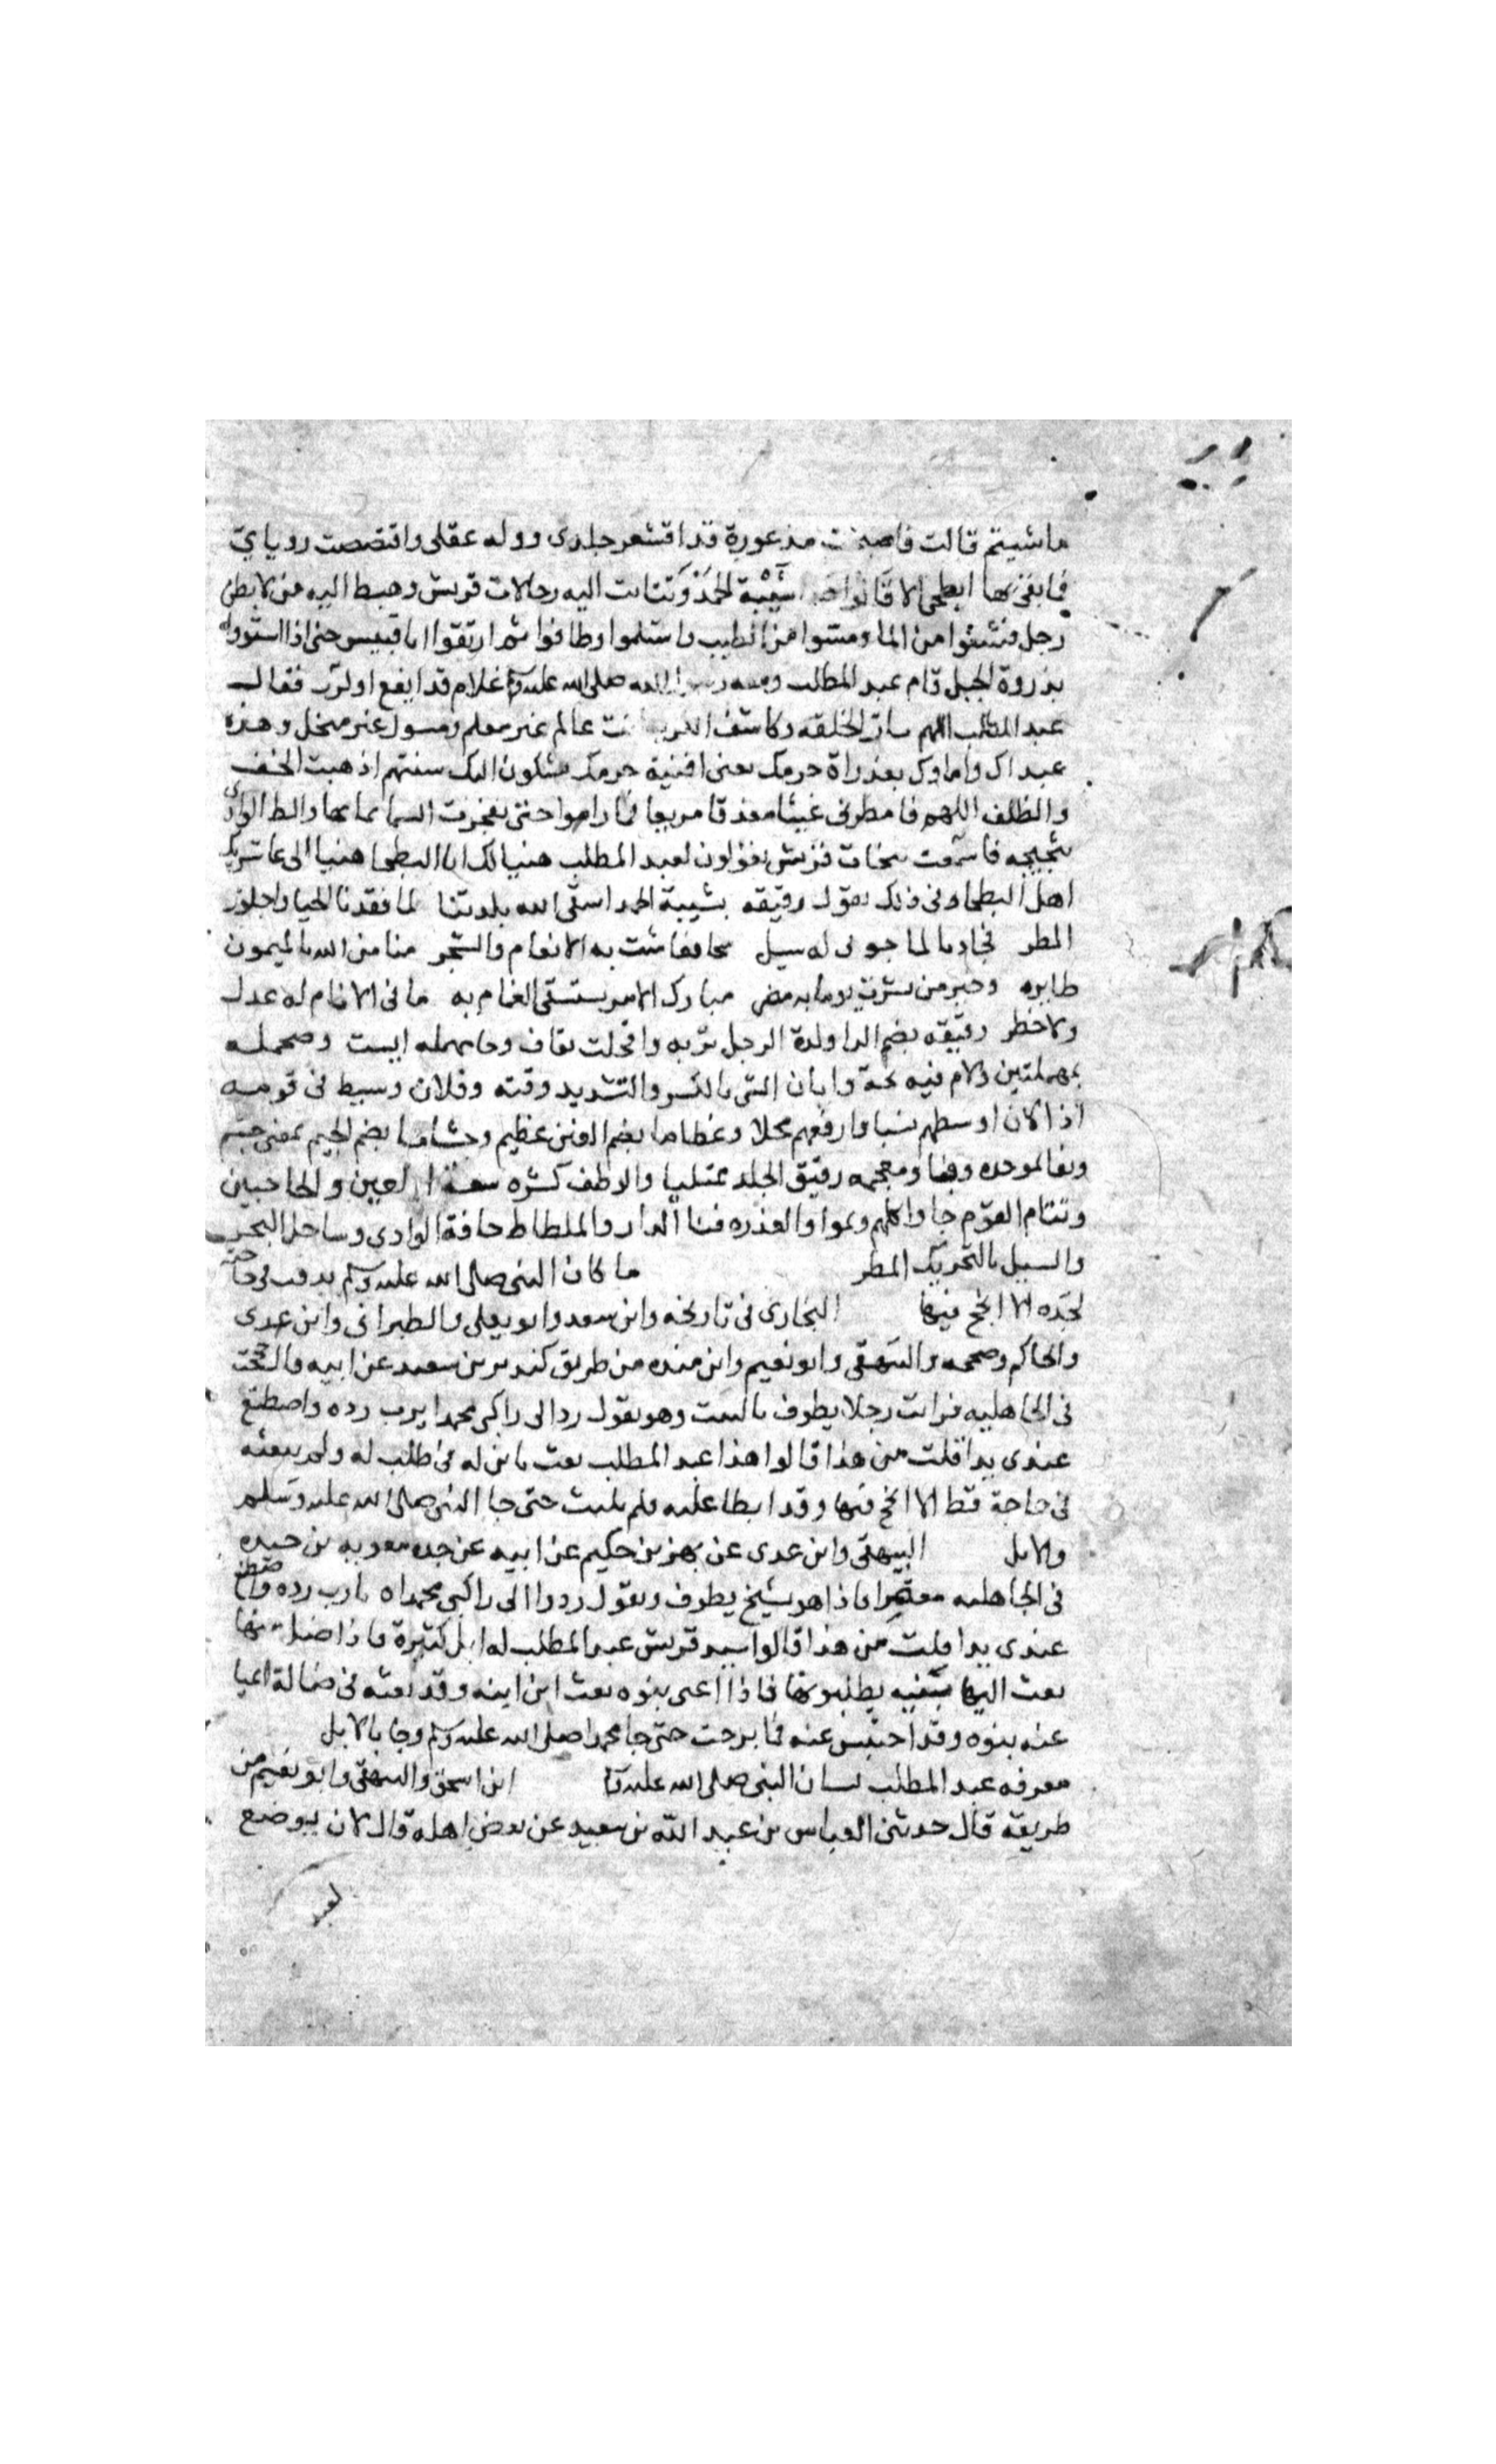 ماشيتم قالت فاصبحت مذعورة قد اقشعر جلدى ووله عقلى واقتصصت روياى
فابقى بها ابطحى الا قالوا هذا شيبة الحمد وتتامت اليه رجالات قريش وهبط اليه من كل بطن
رجل فشنوا من الما ومسوا من الطيب واستلموا وطافوا ثم ارتقوا ابا قبيس حتى اذا استووا
بذروة الجبل قام عبد المطلب ومعه رسول الله صلى الله عليه غلام قد ايفع او كرب فقال
عبد المطلب اللهم ساد الخلقه وكاشف الكربه انت عالم غير معلم ومسول غير مبخل وهذه
عبداك واماوك بعذراة حرمك يعنى افنية حرمك يشكون اليك سنتهم اذهبت الخف
والظلف اللهم فامطرنى غيثا مغدقا مريعا فما راموا حتى تفجرت السما بمايها والط الوادى
بثجيجه فاسمعت سخاب قريش يقولون لعبد المطلب هنيا لك ابا البطحا هنيا اى عاش بك
اهل البطحا وفى ذلك تقول رقيقه بشيبة الحمد اسقى الله بلدتنا لما فقدنا الحيا واجلوذ
المطر فجاد بالما جونى له سبل سحا فعاشت به الانعام والشجر منا من الله بالميمون
طايره وخير من بشرت يوما به مضر مبارك الامر يستسقى الغمام به ما فى الانام له عدل
ولا خطر رقيقه بضم الرا ولدة الرجل تربه واقحلت بقاف وحا مهمله ايبست وصحمله
بمهملتين ولام فيه بحة وابان الشى بالكسر والتشديد وقته وفلان وسيط فى قومه
اذا كان اوسطهم نسبا وارفعهم محلا وعظاما بضم العين عظيم وجساما بضم الجيم بمعنى جسيم
وبفا لموحده وضا ومعجمه رقيق الجلد ممتليا والاوطف كثره سعة العين والحاجبين
وتتام القوم جاوا كلهم وعموا والعذره فنا الدار والملطاط حافة الوادى وساحل البحر
والسبل بالتحريك المطر ما كان النبى صلى الله عليه وسلم يذهب فى حاجة
لجده الا انجح فيها البخارى فى تاريخه وابن سعد وابو يعلى والطبرانى وابن عدى
والحاكم وصححه والبيهقى وابو نعيم وابن منده من طريق كندير بن سعيد عن ابيه قال حججت
فى الجاهليه فرايت رجلا يطوف بالبيت وهو يقول رد الى راكبى محمدا يرب رده واصطنع
عندى يدا قلت من هذا قالوا هذا عبد المطلب بعث بابن له فى طلب له ولم يبعثه
فى حاجة قط الا انجح فيها وقد ابطا عليه فلم يلبث حتى جا النبى صلى الله عليه وسلم
والابل البيهقى وابن عدى عن بهز بن حكيم عن ابيه عن جده معويه بن حيده
فى الجاهليه معتمرا فاذا هو بشيخ يطوف ويقول ردوا الى راكبى محمداه يارب رده واصطنع
عندى يدا قلت من هذا قالوا سيد قريش عبد المطلب له ابل كثيرة فاذا ضل منها
بعث اليها بنيه يطلبونها فاذا اعى بنوه بعث ابن ابنه وقد بعثه فى ضالة اعيا
عنه بنوه وقد احتبس عنه فما برحت حتى جا محمد صلى الله عليه وسلم وجا بالابل
معرفه عبد المطلب لسان النبى صلى الله عليه ابن اسحق والبيهقى وابو نعيم من
طريقه قال حدثنى العباس بن عبد الله بن سعيد عن بعض اهله قال كان يوضع
لعبد